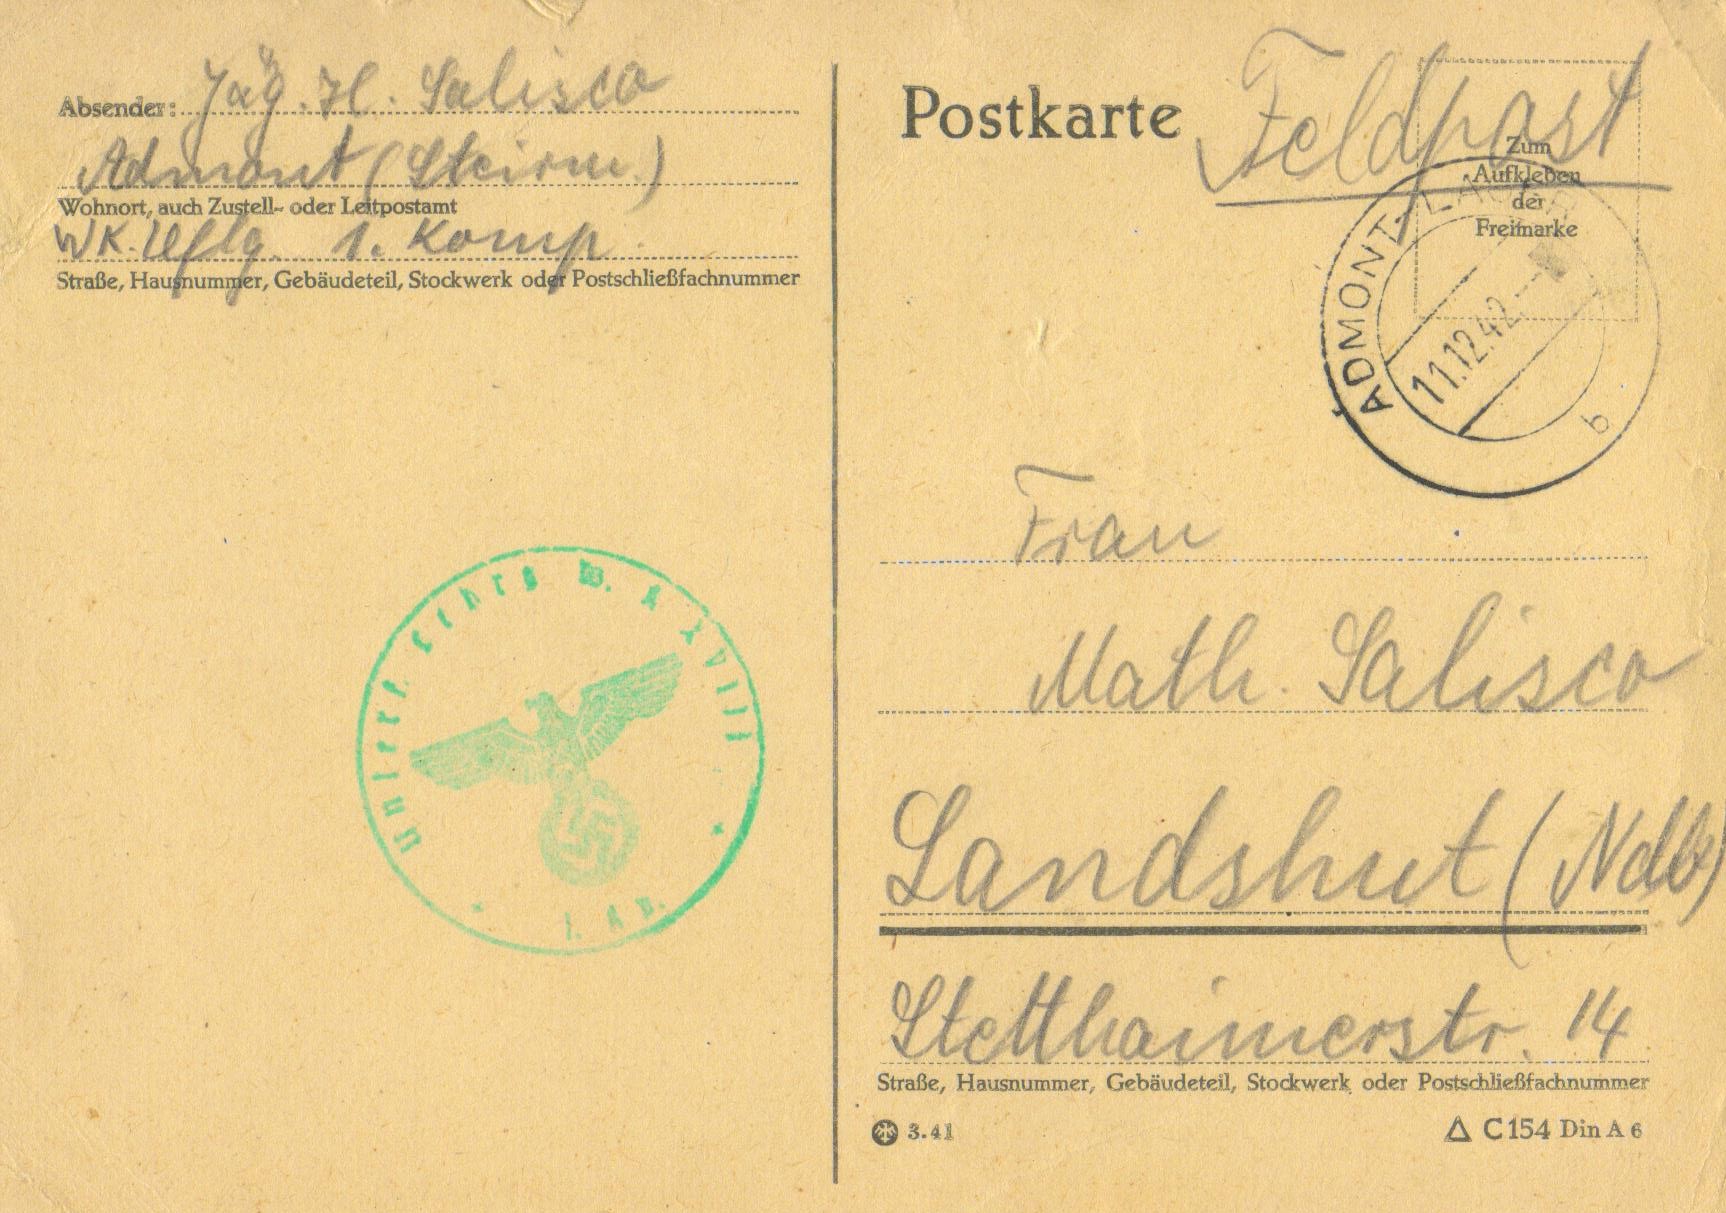 Absender: Jäg. H. Salisco
Admont (Steirm.)
Wohnort, auch Zustell- oder Leitpostamt
WK. Uflg. 1. Komp.
Straße, Hausnummer, Gebäudeteil, Stockwerk oder Postschließfachnummer
Unterf. Lehrg. W. K. XVIII
1. Kp.
Postkarte
Feldpost
Zum
Aufkleben
der
Freimarke
ADMONT
11.12.42.
b
Frau
Math. Salisco
Landshut (Ndb)
Stetthaimerstr. 14
Straße, Hausnummer, Gebäudeteil, Stockwerk oder Postschließfachnummer
3.41
C 154 Din A 6